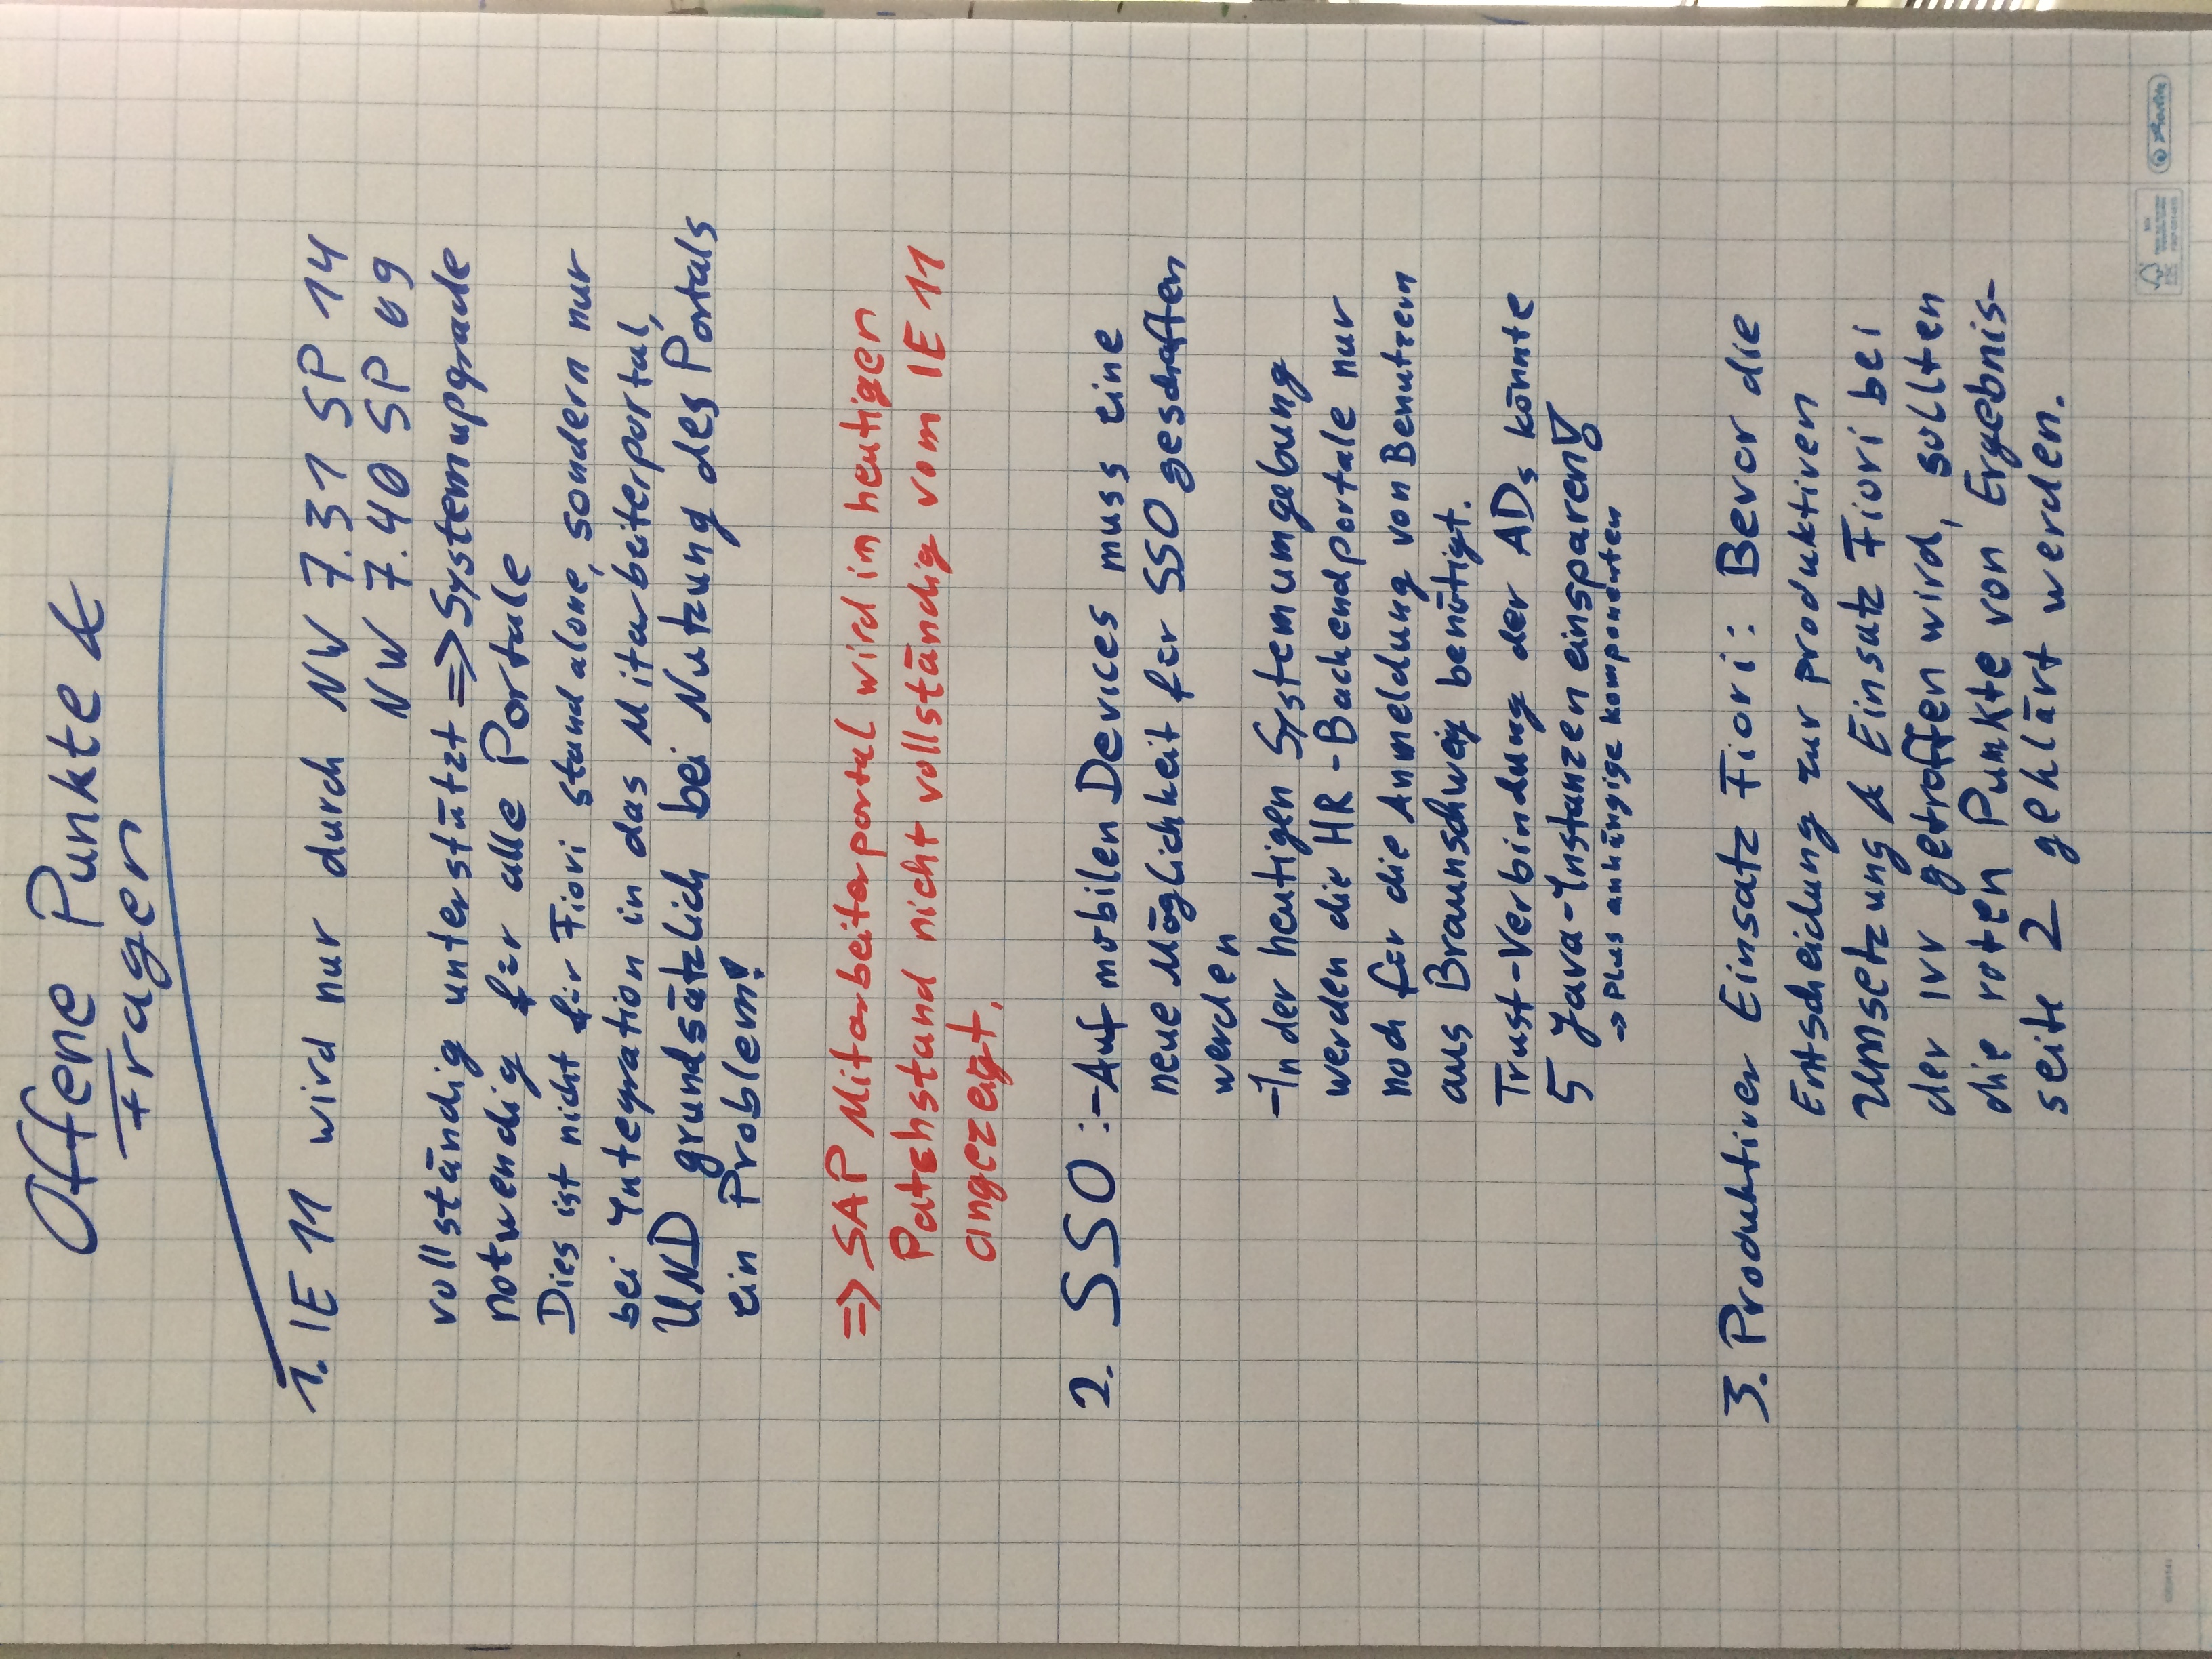 Offene Punkte &
Fragen
1. IE 11 wird nur durch NW 7.31 SP 14
NW 7.40 SP 09
vollständig unterstützt => Systemupgrade
notwendig für alle Portale
Dies ist nicht für Fiori standalone, sondern nur
bei Integration in das Mitarbeiterportal,
UND grundsätzlich bei Nutzung des Portals
ein Problem!
=> SAP Mitarbeiterportal wird im heutigen
Patchstand nicht vollständig vom IE 11
angezeigt.
2. SSO: - Auf mobilen Devices muss eine
neue Möglichkeit für SSO geschaffen
werden
- In der heutigen Systemumgebung
werden die HR-Backendportale nur
noch für die Anmeldung von Benutzern
aus Braunschweig benötigt.
Trust-Verbindung der ADs könnte
5 Java-Instanzen einsparen!
-> Plus anhängige Komponenten
3. Produktiver Einsatz Fiori: Bevor die
Entscheidung zur produktiven
Umsetzung & Einsatz Fiori bei
der IVV getroffen wird, sollten
die roten Punkte von Ergebnis-
seite 2 geklärt werden.
FSC